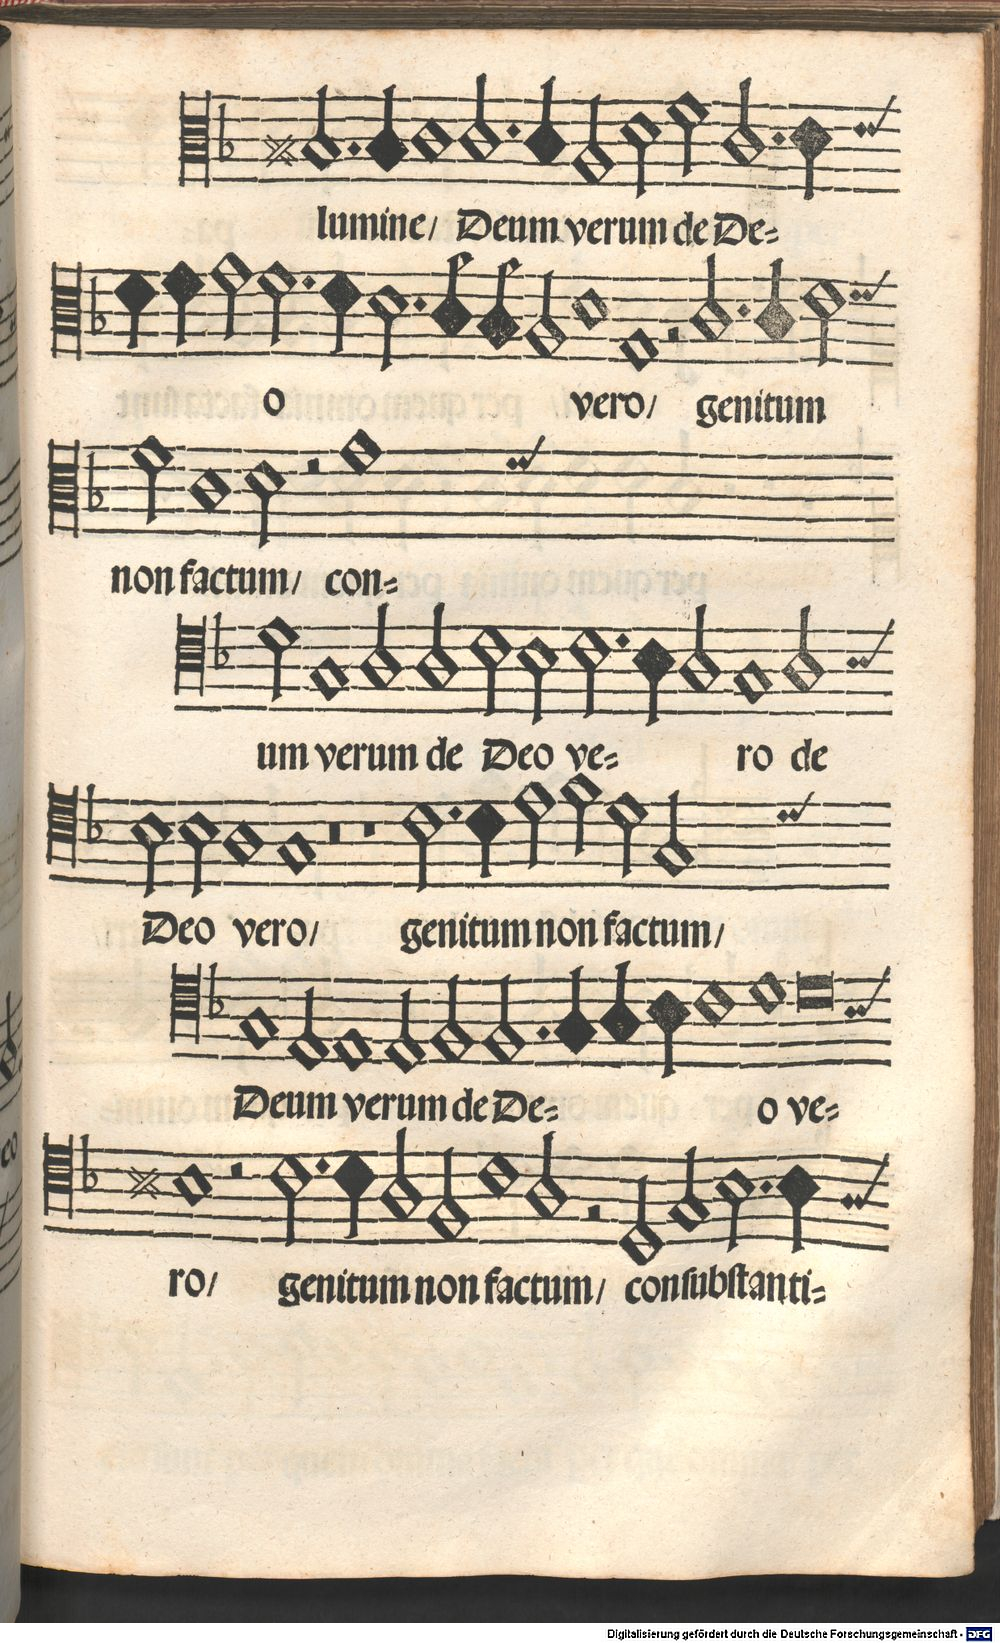 lumine/ Deum verum de De=
o vero/ genitum
non factum/ con=
um verum de Deo ve= ro de
Deo vero/ genitum non factum/
Deum verum de De= o ve=
ro/ genitum non factum/ consubstanti=
Digitalisierung gefördert durch die Deutsche Forschungsgemeinschaft - DFG